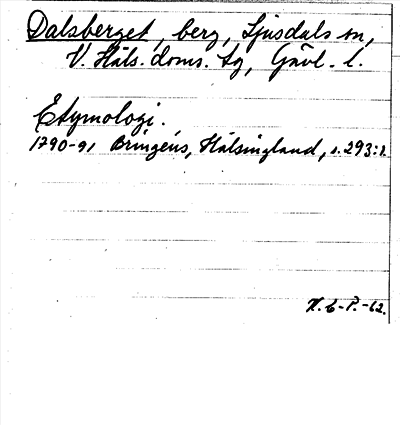 Dalsberget, berg, Ljusdals sn,
V. Häls. doms. tg, Gävl. l.
Etymologi.
1790-91 Bringéus, Hälsingland, s. 293:1.